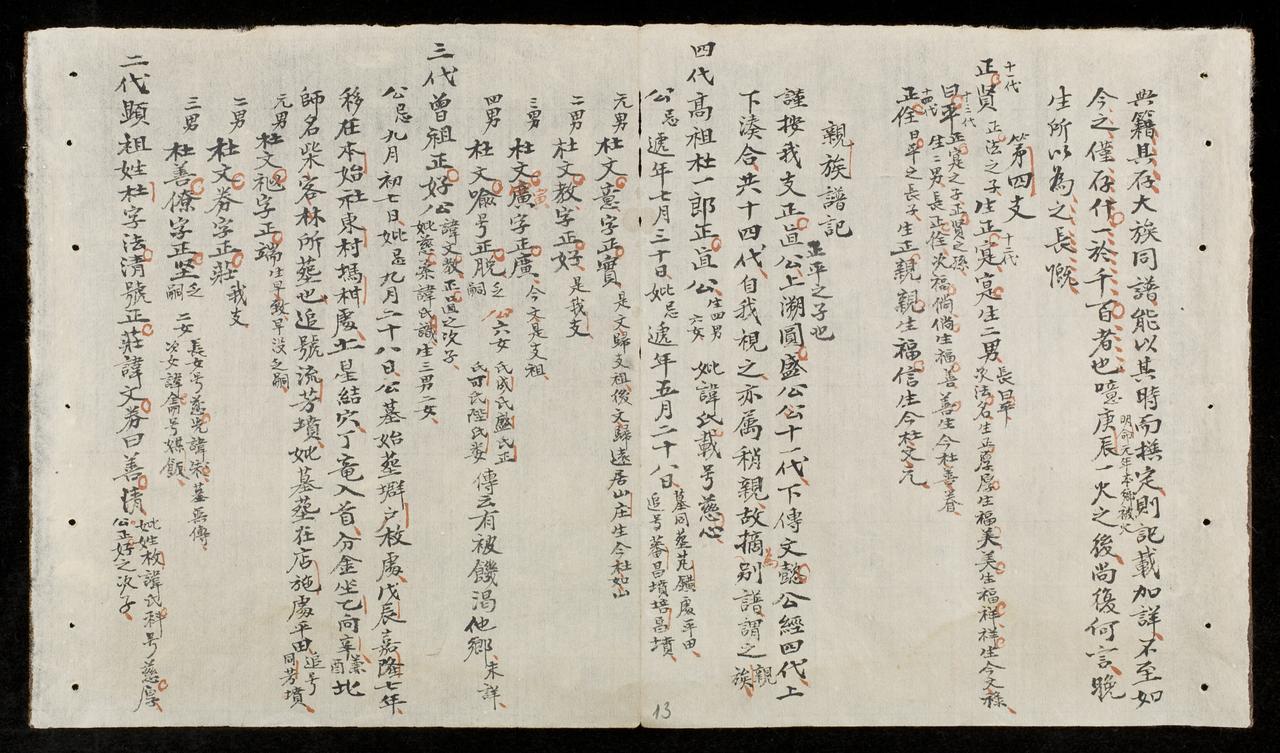 典籍具存大族同譜能以其時而撰定則記載加詳不至如
今之僅存什一於千百者也噫庚辰一火之後尚復何言晚
明命元年本鄉被火
生所以為之長慨
第四支
十一代
正賢 正法之子生正寔寔生二男長曰平
十二代
次法名生正厚厚生福美美生福祥祥生今文祿
十三代
曰平 正寔之子正賢之孫
生二男長正侄次福倘倘生福善善生今杜善眷
十四代
正侄 曰平之長子生正親親生福信生今杜文元
親族譜記
正平之子也
謹按我支正直公上溯圓盛公公十一代下傳文懿公經四代上
下湊合共十四代自我視之亦属稍親故摘為別譜謂之親族
四代髙祖杜一郎正直公 生四男六女 妣諱氏載号慈心
公忌 遞年七月三十日妣忌 遞年五月二十八日
墓同葬芃鐄處平田
追号蕃昌墳培昌墳
元男 杜文薏字正實 是文歸支祖後文歸遠居山庄生今社如山
二男 杜文教字正好 是我支
三男 杜文廣字正廣 寅 今文是支祖
四男 杜文喻号正脫 乏嗣 公六女
傳云有被饑渴他鄉 未詳
三代曾祖正好公 諱文教正直之次子
妣慈案諱氏識生三男二女
公忌九月初七日妣忌九月二十八日公墓始葬墦户枚處戊辰嘉隆七年
移在本始社東村塢柑處土星結穴丁竜入首分金坐乙向辛兼酉北
師名柴客林所葬也追號流芳墳妣墓葬在店施處平田 追号同芳墳
元男 杜文礼字正端 生早歿早没之嗣
二男 杜文券字正莊 我支
三男 杜善僚字正坚 乏嗣
二女 長女号慈光諱窠墓無傳
次女諱侖号媒飯
二代顯祖姓杜字法清號正莊諱文券曰善情 公正好之次子
妣姓枚諱氏科号慈厚
13